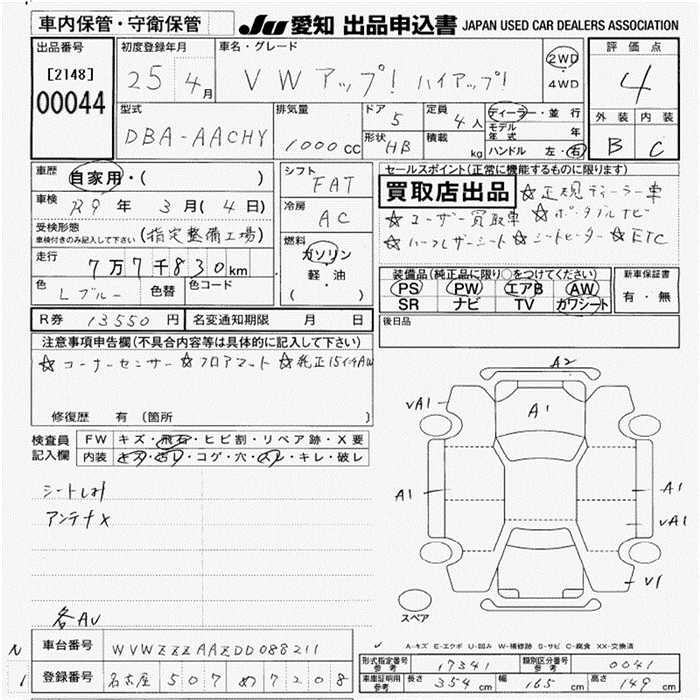 車内保管・守衛保管
JU 愛知 出品申込書 JAPAN USED CAR DEALERS ASSOCIATION
出品番号
[2148]
00044
初度登録年月
25 4月
車名・グレード
VW アップ! ハイアップ!
2WD
・
4WD
評価点
4
外装 内装
B C
型式
DBA-AACHY
排気量
1000cc
ドア
5
形状
HB
定員
4人
積載
kg
ディーラー・並行
モデル年式 年
ハンドル 左・右
車歴
自家用・( )
車検
R9年 3月(4日)
受検形態
車検付きのみ記入して下さい
(指定整備工場)
走行
7万7千830km
色
Lブルー
色替
色コード
シフト
FAT
冷房
AC
燃料
ガソリン
・
軽・油
( )
セールスポイント(正常に機能するものに限ります)
買取店出品 ☆正規ディーラー車
☆ユーザー買取車 ☆ポータブルナビ
☆ハーフレザーシート ☆シートヒーター ☆ETC
装備品(純正品に限り○をつけてください)
PS PW エアB AW
SR ナビ TV カワシート
新車保証書
有・無
R券 13550円
名変通知期限 月 日
後日品
注意事項申告欄(不具合内容等は具体的に記入して下さい)
☆コーナーセンサー ☆フロアマット ☆純正15インチAW
修復歴 有(箇所
検査員
記入欄
FW キズ・飛石・ヒビ割・リペア跡・X要
内装 キズ・汚レ・コゲ・穴・スレ・キレ・破レ
シートしみ
アンテナX
各AU
A2
vA1
A1
A1
A1
vA1
v1
スペア
A-キズ E-エクボ U-凹み W-補修跡 S-サビ C-腐食 XX-交換済
N
1
車台番号
WVWZZZAAZDD088211
登録番号
名古屋 507 め 7208
形式指定番号
参考
17341
類別区分番号
参考
0041
車庫証明用
参考
長さ 354cm 幅 165cm 高さ 149cm